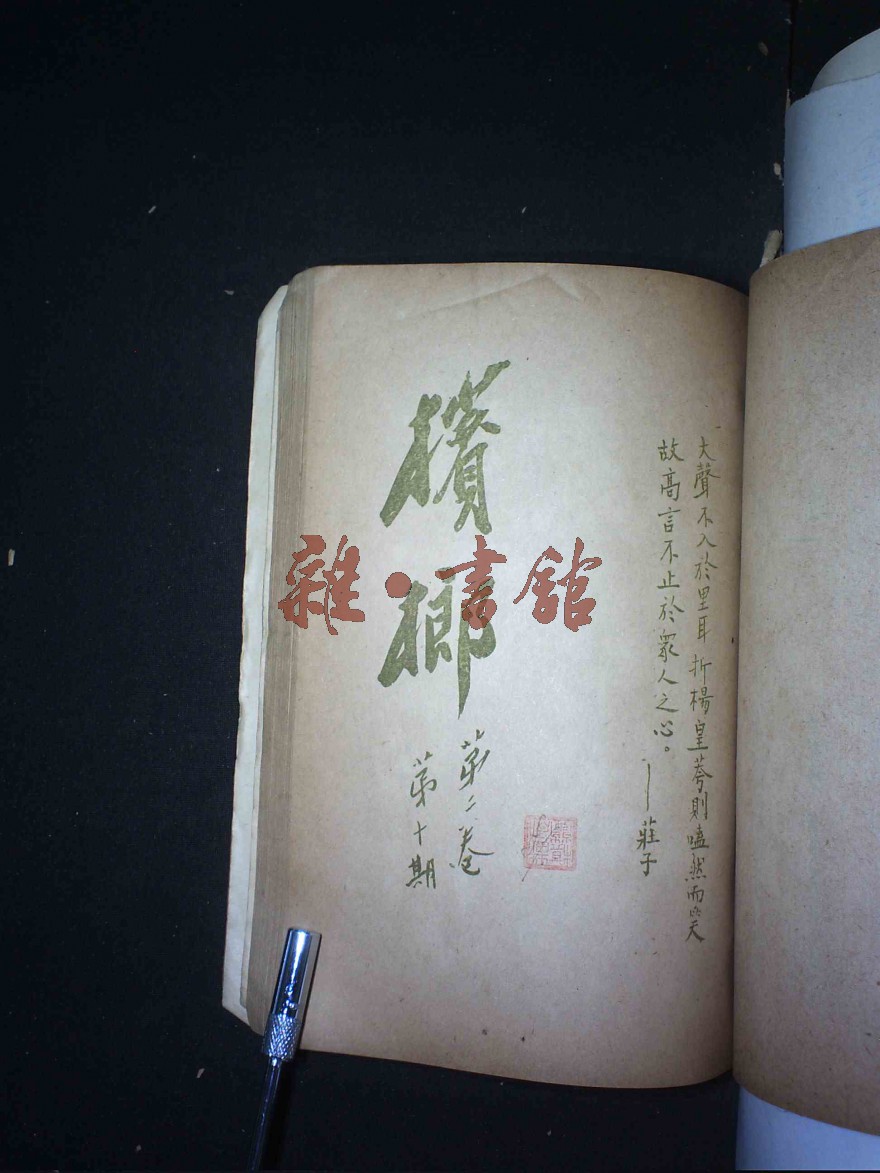 大聲不入於里耳 折楊皇荂則嗑然而咲
故高言不止於眾人之心。
——莊子
檳榔
第二卷
第十期
雜·書館